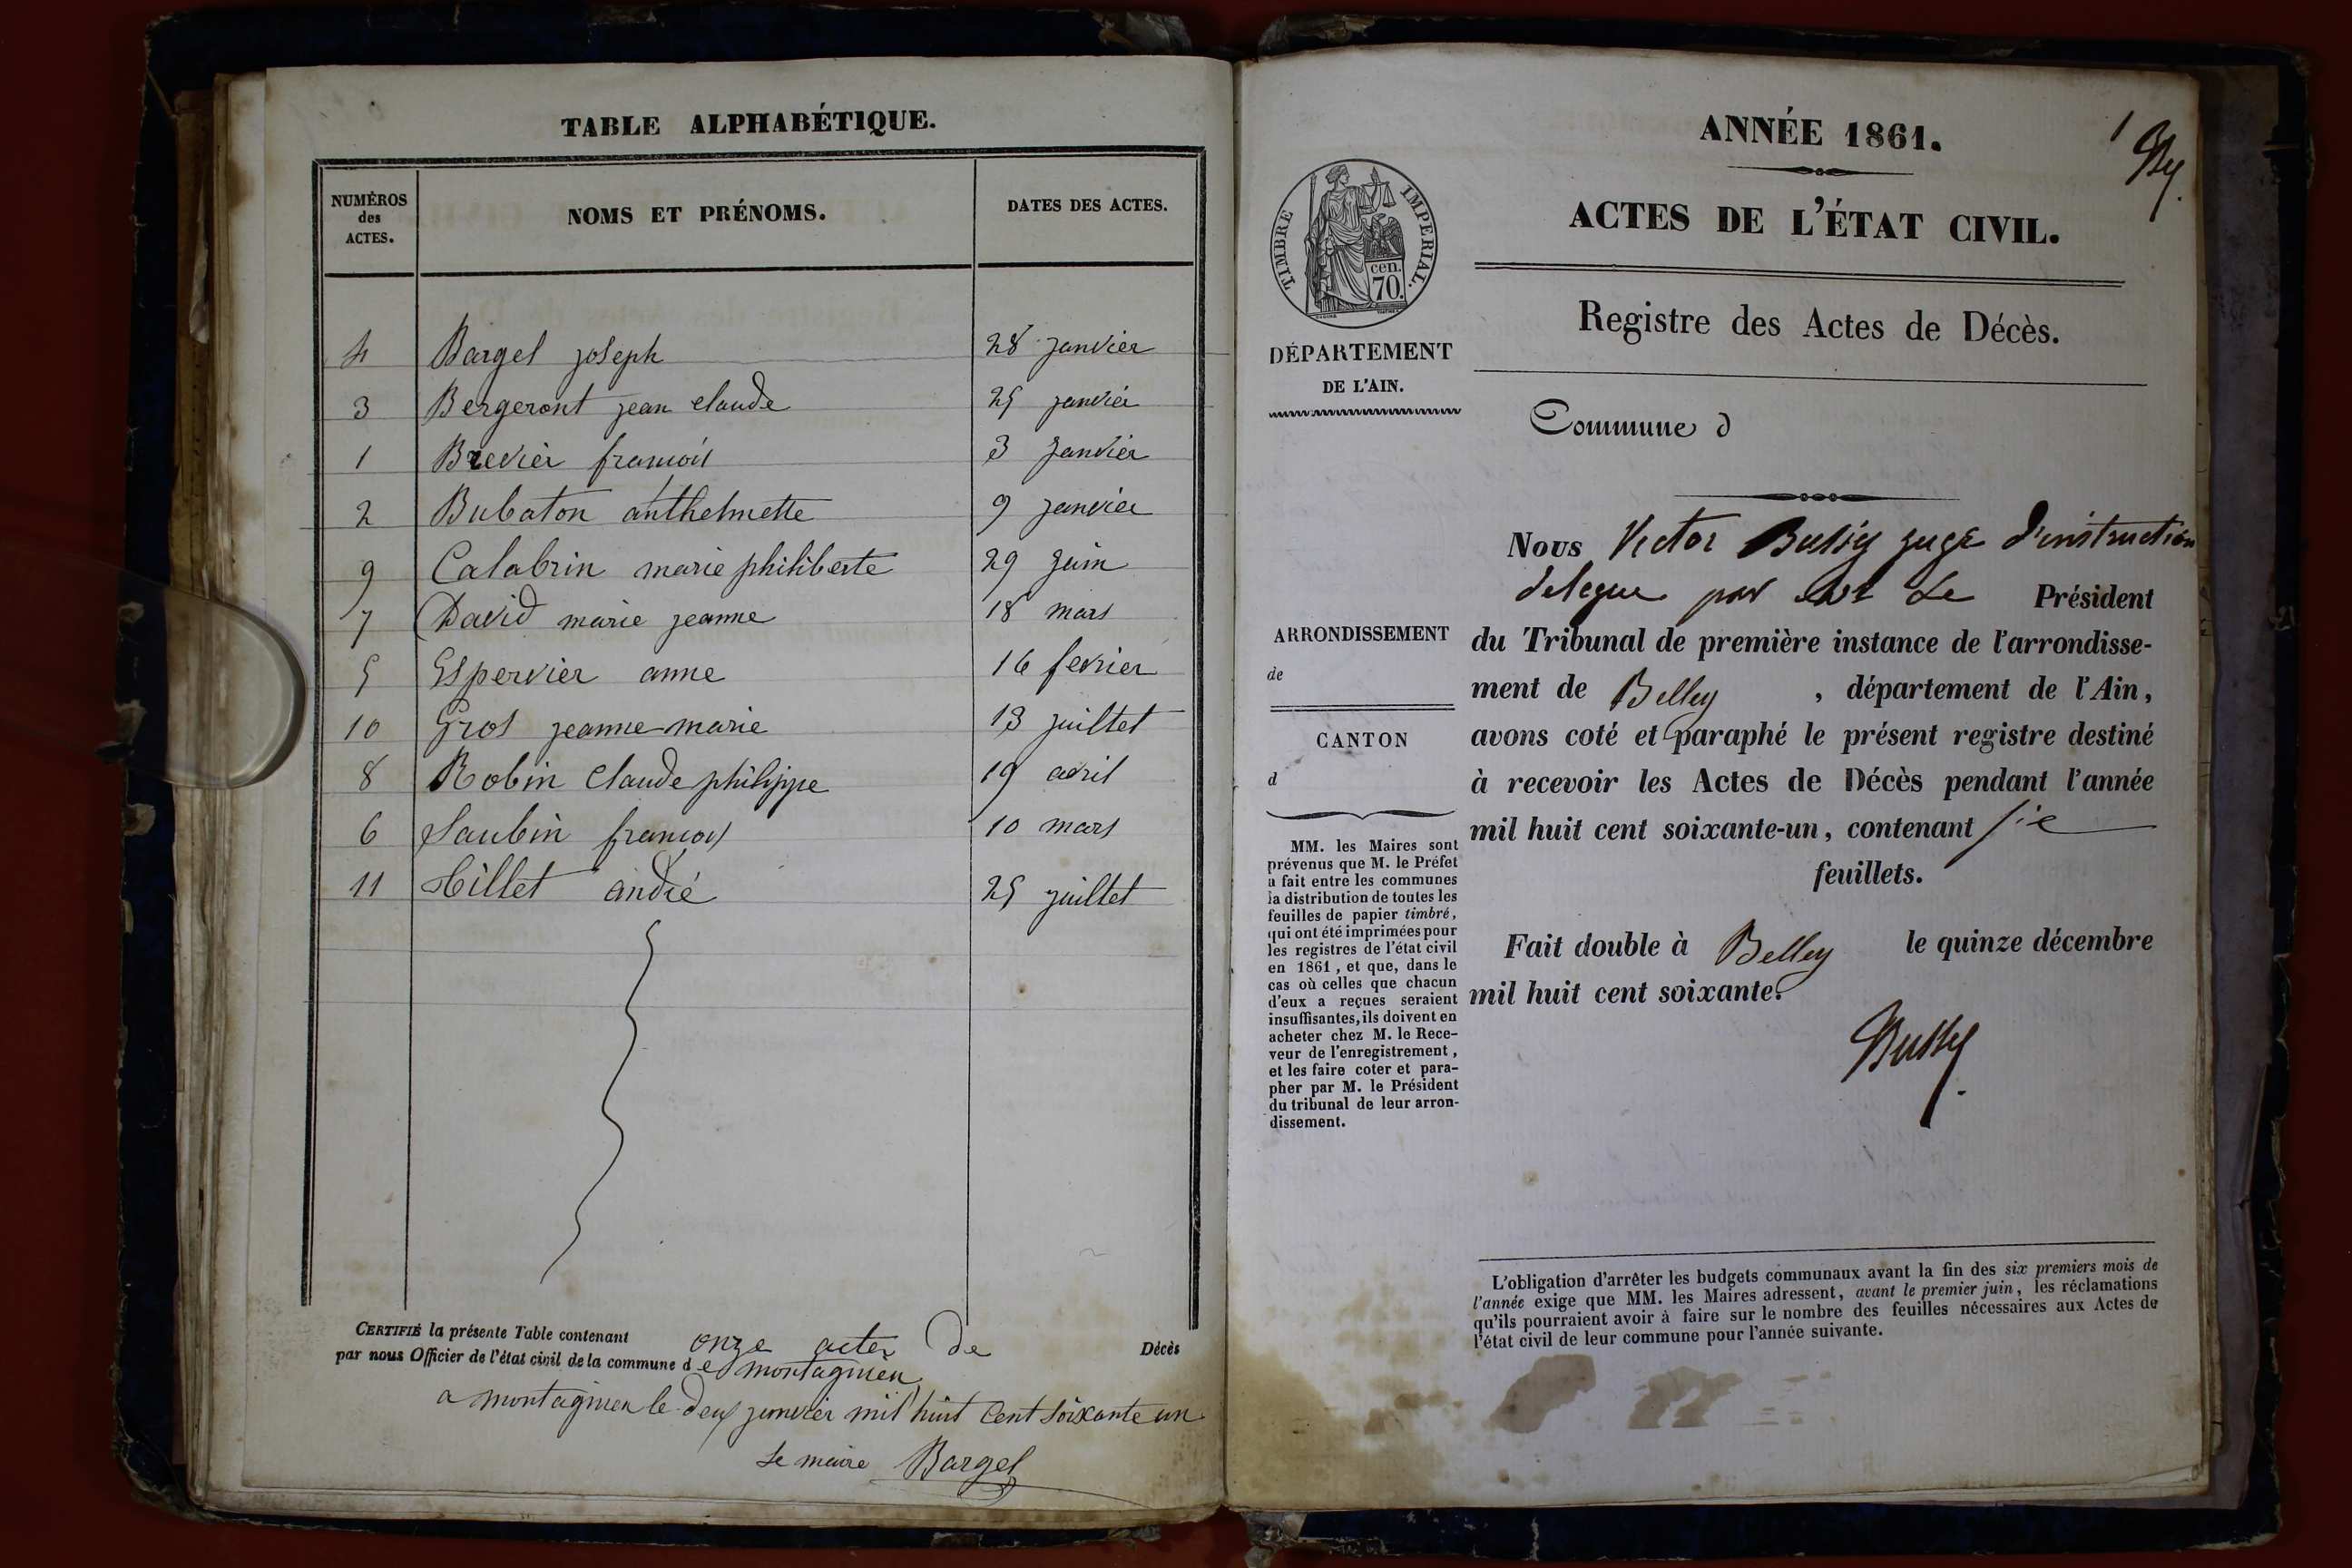 TABLE ALPHABÉTIQUE.
NUMÉROS des ACTES. NOMS ET PRÉNOMS. DATES DES ACTES.
4 Bargel joseph 28 janvier
3 Bergeront jean claude 25 janvier
1 Brevier francois 3 janvier
2 Bubaton anthelmette 9 janvier
9 Calabrin marie philiberte 29 juin
7 David marie jeanne 18 mars
5 Espervier anne 16 fevrier
10 Gros jeanne marie 13 juillet
8 Robin Claude philippe 19 avril
6 Saubin francois 10 mars
11 Tillet andré 25 juillet
CERTIFIÉ la présente Table contenant onze actes de Décès
par nous Officier de l'état civil de la commune de montagnieu
a montagnieu le deux janvier mil huit Cent soixante un
Le maire Bargel
1 By.
ANNÉE 1861.
ACTES DE L'ÉTAT CIVIL.
TIMBRE IMPERIAL.
cen.
70.
Registre des Actes de Décès.
DÉPARTEMENT
DE L'AIN.
Commune d
Nous Victor Bussy juge d'instruction
delegue par Le Président
du Tribunal de première instance de l'arrondisse-
ment de Belley, département de l'Ain,
avons coté et paraphé le présent registre destiné
à recevoir les Actes de Décès pendant l'année
mil huit cent soixante-un, contenant
feuillets.
Fait double à Belley le quinze décembre
mil huit cent soixante.
Bussy
ARRONDISSEMENT
de
CANTON
d
MM. les Maires sont
prévenus que M. le Préfet
a fait entre les communes
la distribution de toutes les
feuilles de papier timbré,
qui ont été imprimées pour
les registres de l'état civil
en 1861, et que, dans le
cas où celles que chacun
d'eux a reçues seraient
insuffisantes, ils doivent en
acheter chez M. le Rece-
veur de l'enregistrement,
et les faire coter et para-
pher par M. le Président
du tribunal de leur arron-
dissement.
L'obligation d'arrêter les budgets communaux avant la fin des six premiers mois de
l'année exige que MM. les Maires adressent, avant le premier juin, les réclamations
qu'ils pourraient avoir à faire sur le nombre des feuilles nécessaires aux Actes de
l'état civil de leur commune pour l'année suivante.